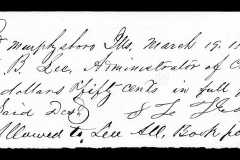 Murphysboro Ills, March 19. 18
B. Lee, Administrator of
dollars & fifty cents in full
Said Decd
Allowed to Lee All. Book